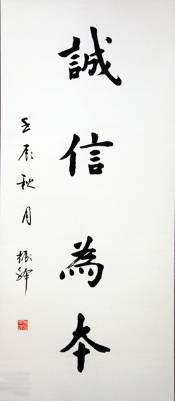 誠信為本
壬辰秋月
振鐸